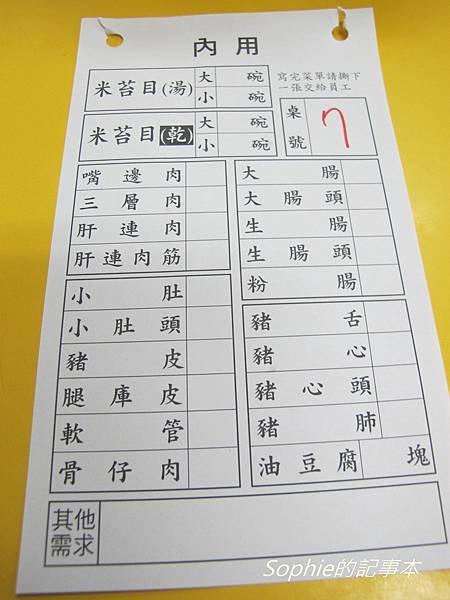 內用
米苔目(湯) 大 碗
小 碗
寫完菜單請撕下
一張交給員工
米苔目(乾) 大 碗
小 碗
桌號 7
嘴邊肉
三層肉
肝連肉
肝連肉筋
大腸
大腸頭
生腸
生腸頭
粉腸
小肚
小肚頭
豬皮
腿庫皮
軟管
骨仔肉
豬舌
豬心
豬心頭
豬肺
油豆腐 塊
其他
需求
Sophie的記事本